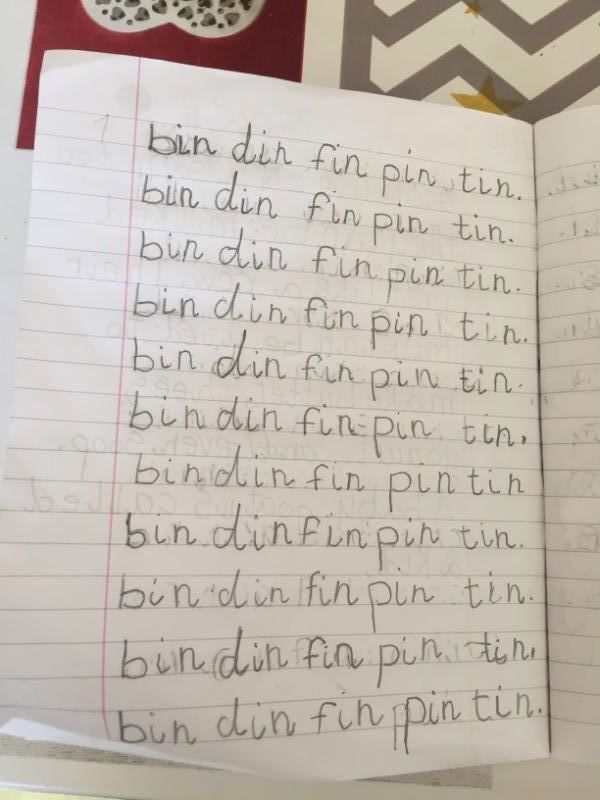 bin din fin pin tin.
bin din fin pin tin.
bin din fin pin tin.
bin din fin pin tin.
bin din fin pin tin.
bin din fin pin tin.
bin din fin pin tin
bin din fin pin tin.
bin din fin pin tin.
bin din fin pin tin.
bin din fin pin tin.